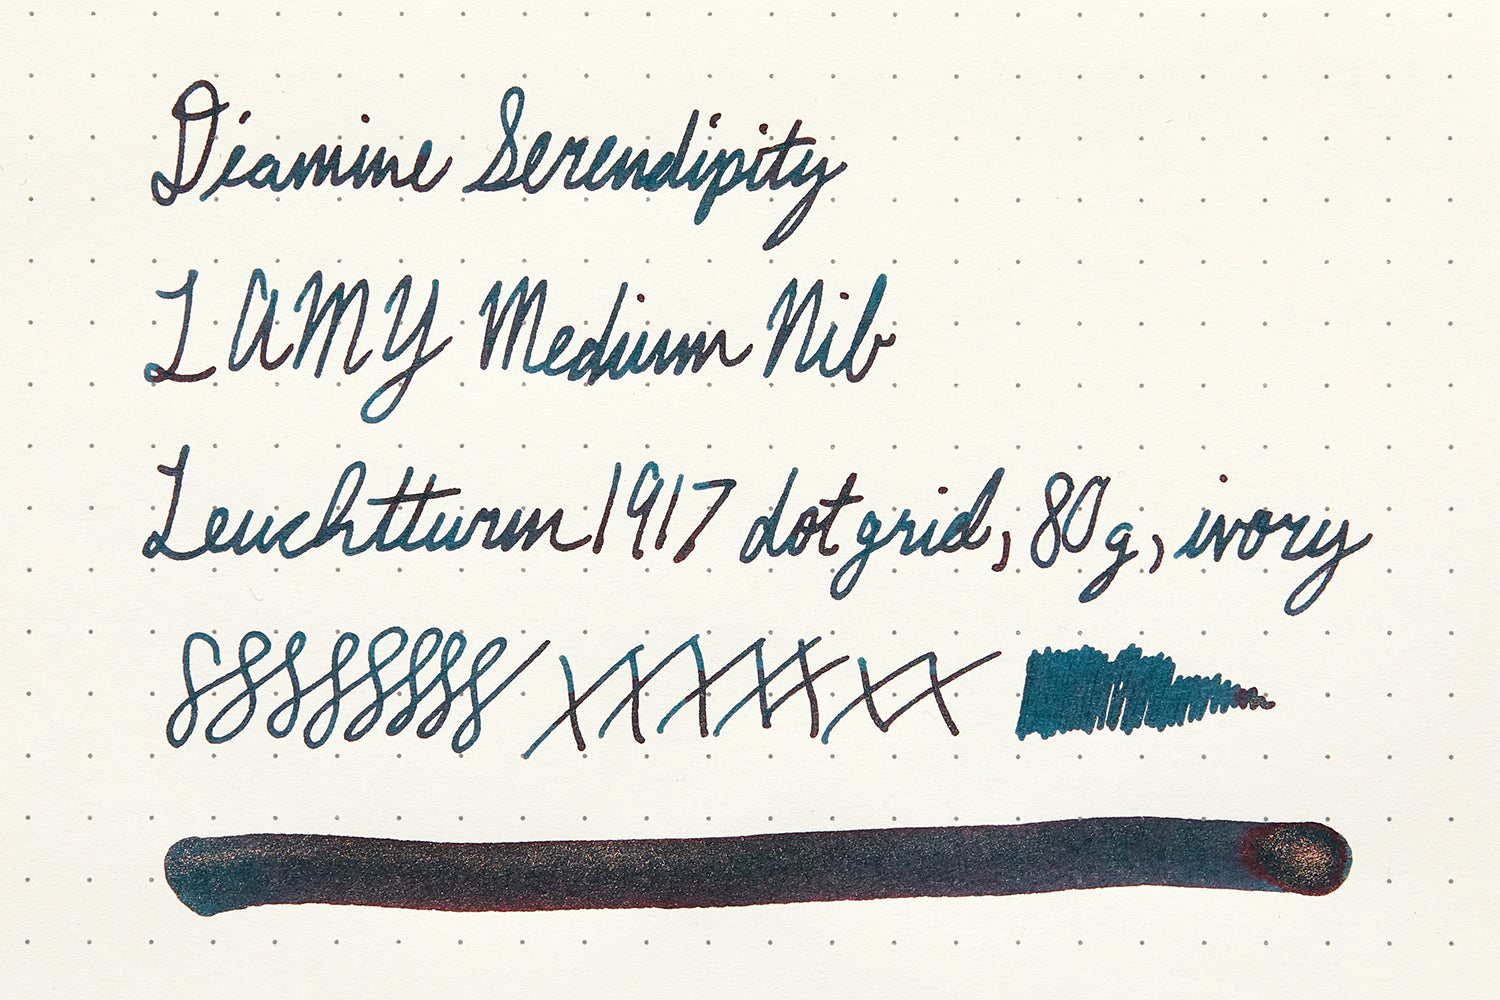 Diamine Serendipity
LAMY Medium Nib
Leuchtturm1917 dot grid, 80g, ivory